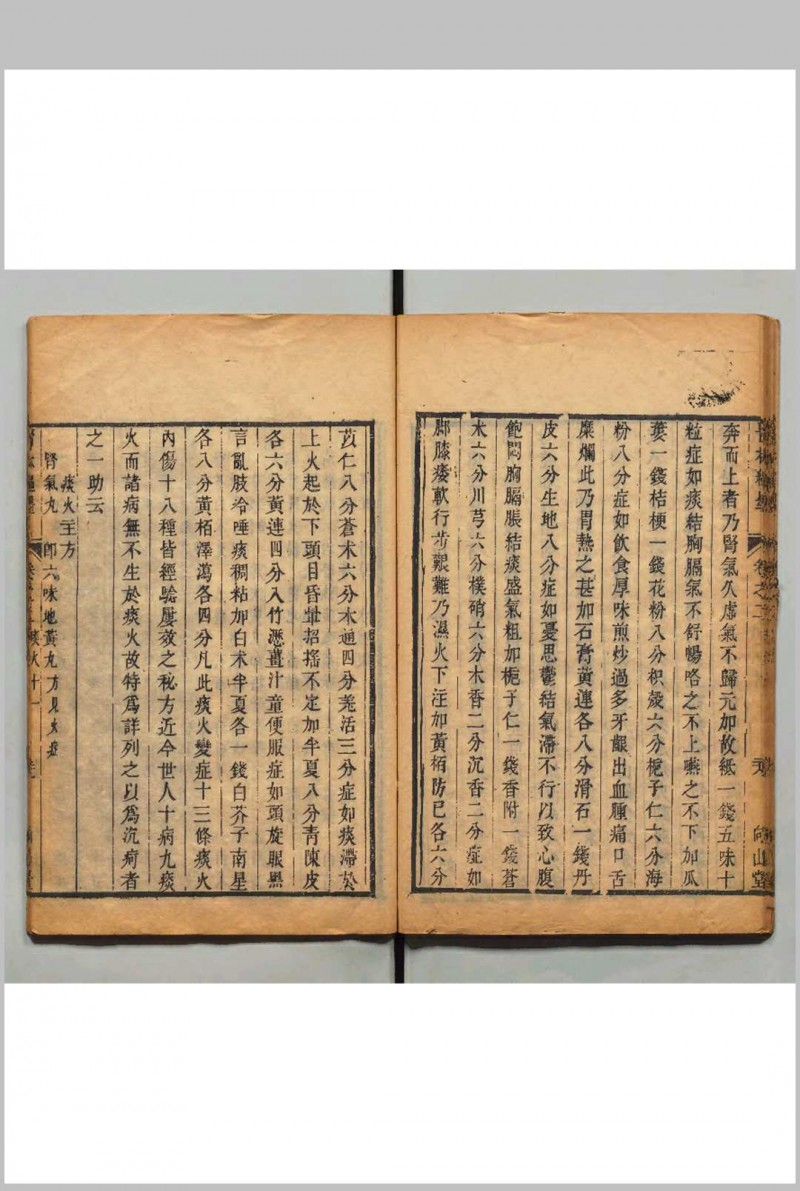 卷之二
向山堂
奔而上者乃腎氣久虛氣不歸元加故紙一錢五味十
粒症如痰結胸膈氣不舒暢咯之不上嚥之不下加瓜
蔞一錢桔梗一錢花粉八分枳殼六分梔子仁六分海
粉八分症如飲食厚味煎炒過多牙齦出血腫痛口舌
糜爛此乃胃熱之甚加石膏黃連各八分滑石一錢丹
皮六分生地八分症如憂思鬱結氣滯不行以致心腹
飽悶胸膈脹結痰盛氣粗加梔子仁一錢香附一錢蒼
朮六分川芎六分樸硝六分木香二分沉香二分症如
脚膝痿軟行步艱難乃濕火下注加黃栢防已各六分
苡仁八分蒼朮六分木通四分羌活三分症如痰滯於
上火起於下頭目昏暈招搖不定加半夏八分青陳皮
各六分黃連四分入竹瀝薑汁童便服症如頭旋眼黑
言亂肢冷唾痰稠粘加白朮半夏各一錢白芥子南星
各八分黃栢澤瀉各四分凡此痰火變症十三條痰火
內傷十八種皆經驗屢效之秘方近今世人十病九痰
火而諸病無不生於痰火故特爲詳列之以爲沉痾者
之一助云
痰火主方
腎氣丸 卽六味地黃丸方見火症